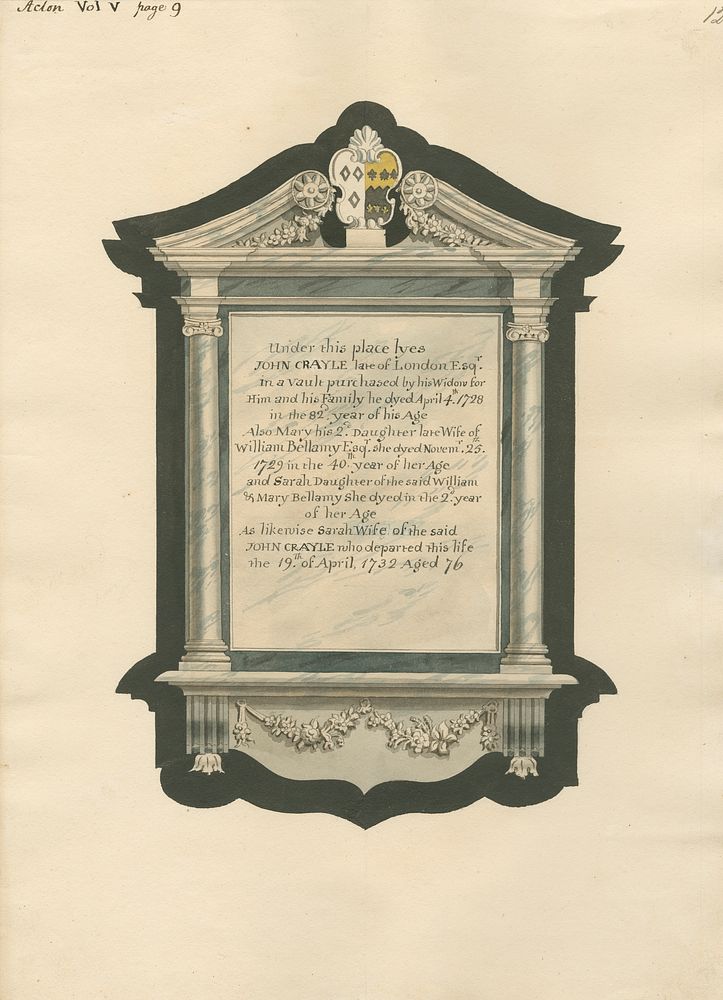 Acton Vol V page 9
12
Under this place lyes
JOHN CRAYLE late of London Esqr.
in a Vault purchased by his Widow for
Him and his Family he dyed April 4th. 1728
in the 82d. year of his Age
Also Mary his 2d. Daughter late Wife of
William Bellamy Esqr. she dyed Novemr. 25th.
1729 in the 40th. year of her Age
and Sarah Daughter of the said William
& Mary Bellamy She dyed in the 2d. year
of her Age
As likewise Sarah Wife of the said
JOHN CRAYLE who departed this life
the 19th. of April, 1732 Aged 76